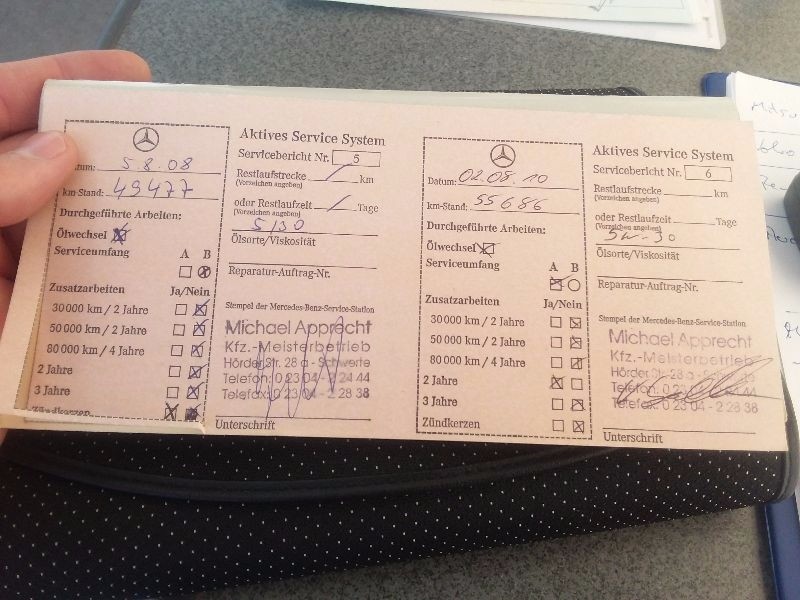 Aktives Service System
Servicebericht Nr. 5
Datum: 5.8.08
km-Stand: 49477
Restlaufstrecke km
(Vorzeichen angeben)
oder Restlaufzeit Tage
(Vorzeichen angeben)
Durchgeführte Arbeiten:
5/30
Ölwechsel
Ölsorte/Viskosität
Serviceumfang A B
Reparatur-Auftrag-Nr.
Zusatzarbeiten Ja/Nein
30 000 km / 2 Jahre
50 000 km / 2 Jahre
80 000 km / 4 Jahre
2 Jahre
3 Jahre
Zündkerzen
Stempel der Mercedes-Benz-Service-Station
Michael Apprecht
Kfz.-Meisterbetrieb
Hörder Str. 28 a - Schwerte
Telefon: 0 23 04 - 2 24 44
Telefax: 0 23 04 - 2 28 38
Unterschrift
Aktives Service System
Servicebericht Nr. 6
Datum: 02.08.10
km-Stand: 55686
Restlaufstrecke km
(Vorzeichen angeben)
oder Restlaufzeit Tage
(Vorzeichen angeben)
Durchgeführte Arbeiten:
5w-30
Ölwechsel
Ölsorte/Viskosität
Serviceumfang A B
Reparatur-Auftrag-Nr.
Zusatzarbeiten Ja/Nein
30 000 km / 2 Jahre
50 000 km / 2 Jahre
80 000 km / 4 Jahre
2 Jahre
3 Jahre
Zündkerzen
Stempel der Mercedes-Benz-Service-Station
Michael Apprecht
Kfz.-Meisterbetrieb
Hörder Str. 28 a - Schwerte
Telefon: 0 23 04
Telefax: 0 23 04 - 2 28 38
Unterschrift